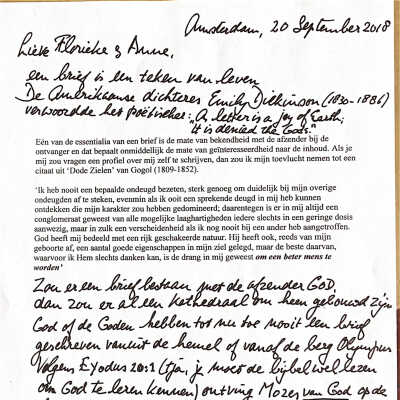 Amsterdam, 20 September 2018
Lieve Florieke & Anne,
een brief is een teken van leven
De Amerikaanse dichteres Emily Dickinson (1830-1886)
verwoordde het poëtischer: "A letter is a joy of Earth;
It is denied the Gods."
Eén van de essentialia van een brief is de mate van bekendheid met de afzender bij de
ontvanger en dat bepaalt onmiddellijk de mate van geïnteresseerdheid naar de inhoud. Als je
mij zou vragen een profiel over mij zelf te schrijven, dan zou ik mijn toevlucht nemen tot een
citaat uit 'Dode Zielen' van Gogol (1809-1852).
'Ik heb nooit een bepaalde ondeugd bezeten, sterk genoeg om duidelijk bij mijn overige
ondeugden af te steken, evenmin als ik ooit een sprekende deugd in mij heb kunnen
ontdekken die mijn karakter zou hebben gedomineerd; daarentegen is er in mij altijd een
conglomeraat geweest van alle mogelijke laaghartigheden iedere slechts in een geringe dosis
aanwezig, maar in zulk een verscheidenheid als ik nog nooit bij een ander heb aangetroffen.
God heeft mij bedeeld met een rijk geschakeerde natuur. Hij heeft ook, reeds van mijn
geboorte af, een aantal goede eigenschappen in mijn ziel gelegd, maar de beste daarvan,
waarvoor ik Hem slechts danken kan, is de drang in mij geweest om een beter mens te
worden'
Zou er een brief bestaan met de afzender GOD,
dan zou er al een kathedraal om heen gebouwd zijn
God of de Goden hebben tot nu toe nooit een brief
geschreven vanuit de hemel of vanaf de berg Olympus
Volgens Exodus 20:1 (tja, je moet de bijbel wel lezen
om God te leren kennen) ontving Mozes van God op de